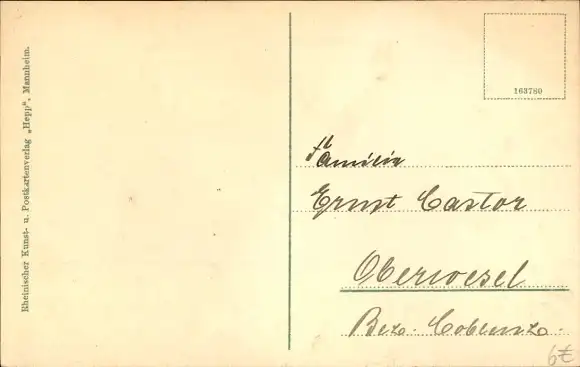 Rheinischer Kunst- u. Postkartenverlag „Hepp", Mannheim.
163780
Familie
Ernst Castor
Oberwesel
Bez. Coblenz.
6€